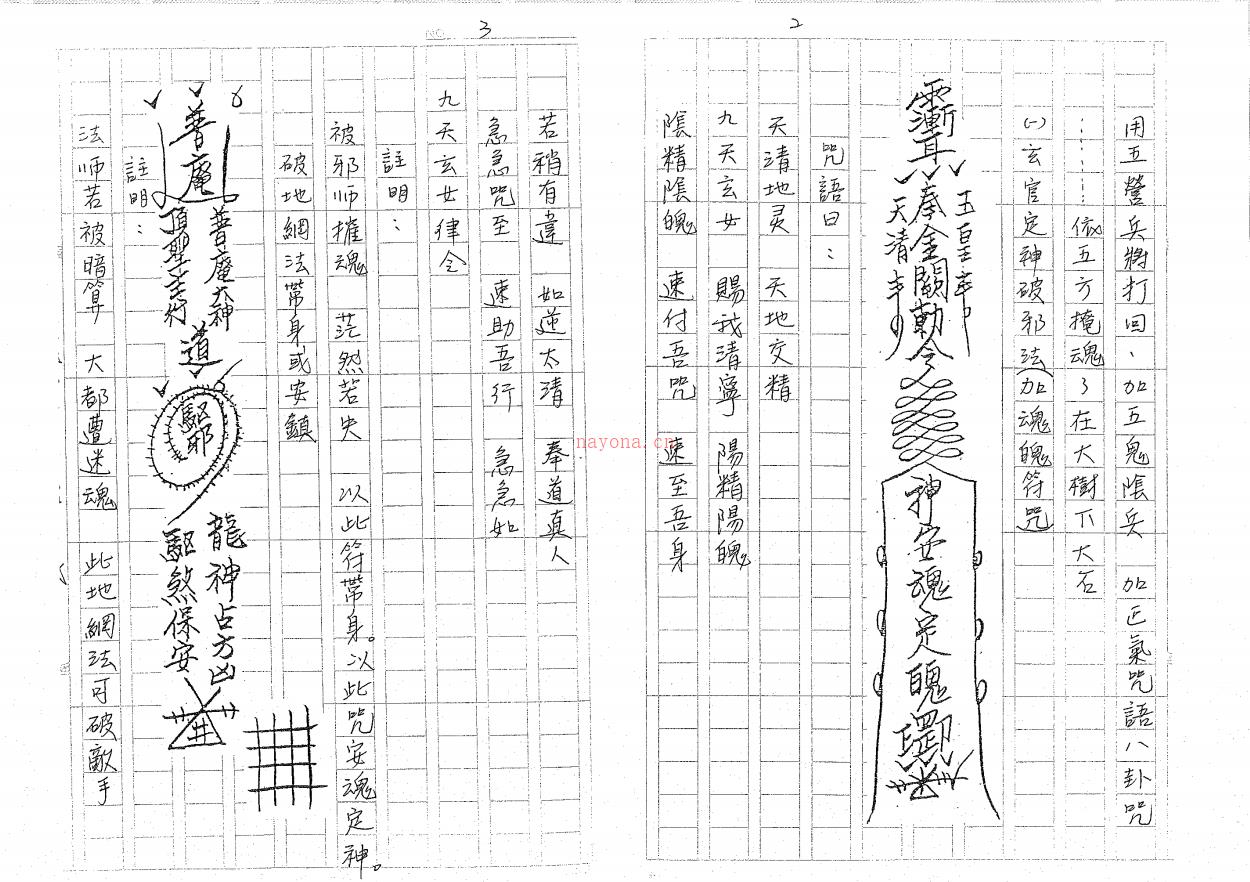 2
用五營兵將打回、加五鬼陰兵 加正氣咒語八卦咒
………依五方掩魂了在大樹下大石
(一)玄官定神破邪法(加魂魄符咒)
玉皇
奉金闕勅令
天清
神安魂定魄
咒語曰：
天清地灵 天地交精
九天玄女 賜我清寧 陽精陽魄
陰精陰魄 速付吾咒 速至吾身
nayona.cn
NO. 3
若稍有違 如逆太清 奉道真人
急急咒至 速助吾行 急急如
九天玄女律令
註明：
被邪师摧魂 茫然若失 以此符帶身。以此咒安魂定神。
破地網法帶身或安鎮
普庵
普庵大神
頂聖主行
道
驅邪
龍神占方凶
驅煞保安
井
註明：
法师若被暗算 大都遭迷魂 此地網法可破敵手